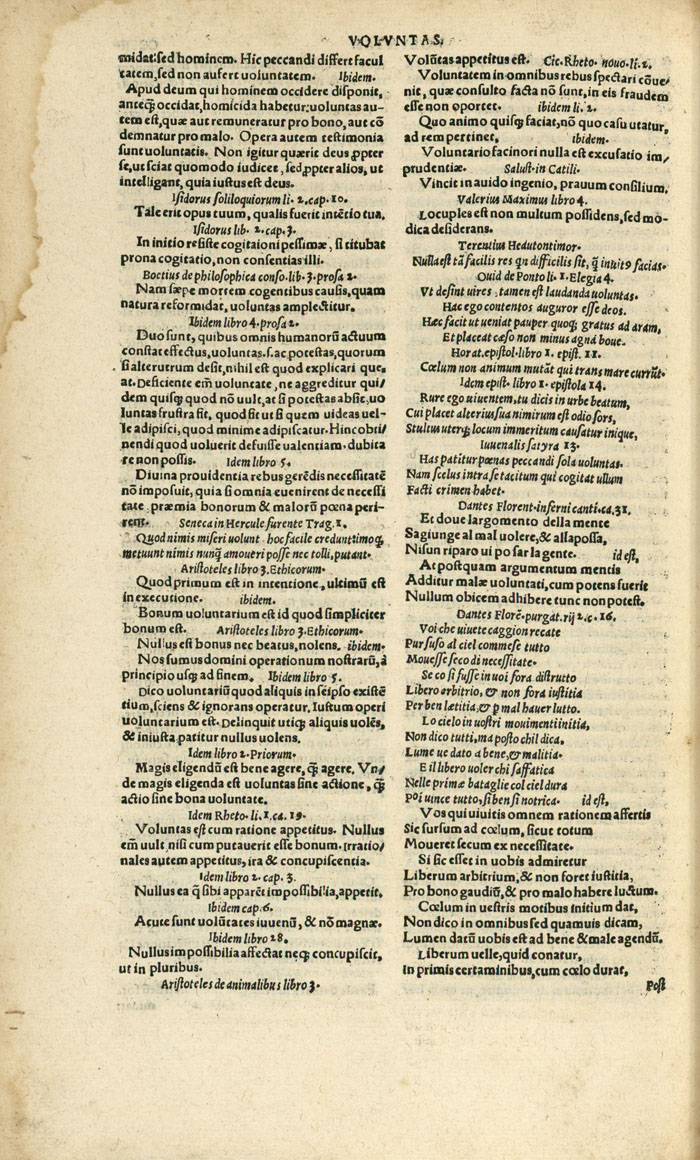 VOLVNTAS.
midat: sed hominem. Hic peccandi differt facul
tatem, sed non aufert uoluntatem. Ibidem.
Apud deum qui hominem occidere disponit,
anteq̃ occidat, homicida habetur: uoluntas au-
tem est, quæ aut remuneratur pro bono, aut cõ
demnatur pro malo. Opera autem testimonia
sunt uoluntatis. Non igitur quærit deus ꝓpter
se, ut sciat quomodo iudicet, sed ꝓpter alios, ut
intelligant, quia iustus est deus.
Isidorus soliloquiorum li. 2. cap. 10.
Tale erit opus tuum, qualis fuerit intẽtio tua.
Isidorus lib. 2. cap. 3.
In initio resiste cogitaioni pessimæ, si titubat
prona cogitatio, non consentias illi.
Boetius de philosophica conso. lib. 3. prosa 2.
Nam sæpe mortem cogentibus causis, quam
natura reformidat, uoluntas amplectitur.
Ibidem libro 4. prosa 2.
Duo sunt, quibus omnis humanorũ actuum
constat effectus, uoluntas. s. ac potestas, quorum
si alterutrum desit, nihil est quod explicari que-
at. Deficiente em̃ uoluntate, ne aggreditur qui/
dem quisq̃ quod nõ uult, at si potestas absit, uo
luntas frustra sit, quod sit ut si quem uideas uel-
le adipisci, quod minime adipiscatur. Hinc obti/
nendi quod uoluerit defuisse ualentiam. dubita
re non possis. Idem libro 5.
Diuina prouidentia rebus gerẽdis necessitatẽ
nõ imposuit, quia si omnia euenirent de necessi
tate præmia bonorum & malorũ pœna peri-
rent. Seneca in Hercule furente Trag. 1.
Quod nimis miseri uolunt hoc facile credunt: imoq̃
metuunt nimis nunq̃ amoueri posse nec tolli, putant.
Aristoteles libro 3. Ethicorum.
Quod primum est in intentione, ultimũ est
in executione. ibidem.
Bonum uoluntarium est id quod simpliciter
bonum est. Aristoteles libro 3. Ethicorum.
Nullus est bonus nec beatus, nolens. ibidem.
Nos sumus domini operationum nostrarũ, à
principio usq̃ ad finem. Ibidem libro 5.
Dico uoluntariũ quod aliquis in seipso existẽ
tium, sciens & ignorans operatur. Iustum operi
uoluntarium est. Delinquit utiq̃ aliquis uolẽs,
& iniusta patitur nullus uolens.
Idem libro 2. Priorum.
Magis eligendũ est bene agere, q̃ agere. Vn/
de magis eligenda est uoluntas sine actione, q̃
actio sine bona uoluntate.
Idem Rheto. li. 1. ca. 19.
Voluntas est cum ratione appetitus. Nullus
em̃ uult, nisi cum putauerit esse bonum. Irratio/
nales autem appetitus, ira & concupiscentia.
Idem libro 2. cap. 3.
Nullus ea q̃ sibi apparẽt impossibilia, appetit.
Ibidem cap. 6.
Acute sunt uolũtates iuuenũ, & nõ magnæ.
Ibidem libro 28.
Nullus impossibilia affectat neq̃ concupiscit,
ut in pluribus.
Aristoteles de animalibus libro 3.
Volũtas appetitus est. Cic. Rheto. nouo. li. 2.
Voluntatem in omnibus rebus spectari cõue-
nit, quæ consulto facta nõ sunt, in eis fraudem
esse non oportet. ibidem li. 2.
Quo animo quisq̃ faciat, nõ quo casu utatur,
ad rem pertinet. ibidem.
Voluntario facinori nulla est excusatio im/
prudentiæ. Salust. in Catili.
Vincit in auido ingenio, prauum consilium.
Valerius Maximus libro 4.
Locuples est non multum possidens, sed mo-
dica desiderans.
Terentius Heautontimor.
Nulla est tã facilis res qn difficilis sit, q̃ inuitꝰ facias.
Ouid de Ponto li. 1. Elegia 4.
Vt desint uires, tamen est laudanda uoluntas.
Hac ego contentos auguror esse deos.
Hæc facit ut ueniat pauper quoq̃ gratus ad aram,
Et placeat cæso non minus agna boue.
Horat. epistol. libro 1. epist. 11.
Cœlum non animum mutãt qui trans mare currũt.
Idem epist. libro 1. epistola 14.
Rure ego uiuentem, tu dicis in urbe beatum,
Cui placet alterius sua nimirum est odio sors,
Stultus uterq̃ locum immeritum causatur inique,
Iuuenalis satyra 13.
Has patitur pœnas peccandi sola uoluntas.
Nam scelus intra se tacitum qui cogitat ullum
Facti crimen habet.
Dantes Florent. inferni canti. ca. 31.
Et doue largomento della mente
Sagiunge al mal uolere, & allaposſa,
Nisun riparo ui po far la gente. id est,
At postquam argumentum mentis
Additur malæ uoluntati, cum potens fuerit
Nullum obicem adhibere tunc non potest.
Dantes Florẽ. purgat. rij 2. c. 16.
Voi che uiuete caggion recate
Pur suso al ciel commese tutto
Mouesse seco di necessitate.
Se co si fusse in uoi fora distrutto
Libero arbitrio, & non fora iustitia
Per ben lætitia, & ꝑ mal hauer lutto.
Lo cielo in uostri mouimenti initia,
Non dico tutti, ma posto chil dica,
Lume ue dato a bene, & malitia.
E il libero uoler chi saffatica
Nelle primæ bataglie col ciel dura
Poi uince tutto, si ben si notrica. id est,
Vos qui uiuitis omnem rationem affertis
Sic sursum ad cœlum, sicut totum
Moueret secum ex necessitate.
Si sic esset in uobis admiretur
Liberum arbitrium, & non foret iustitia,
Pro bono gaudiũ, & pro malo habere luctum.
Cœlum in uestris motibus initium dat,
Non dico in omnibus sed quamuis dicam,
Lumen datũ uobis est ad bene & male agendũ.
Liberum uelle, quid conatur,
In primis certaminibus, cum cœlo durat,
Post